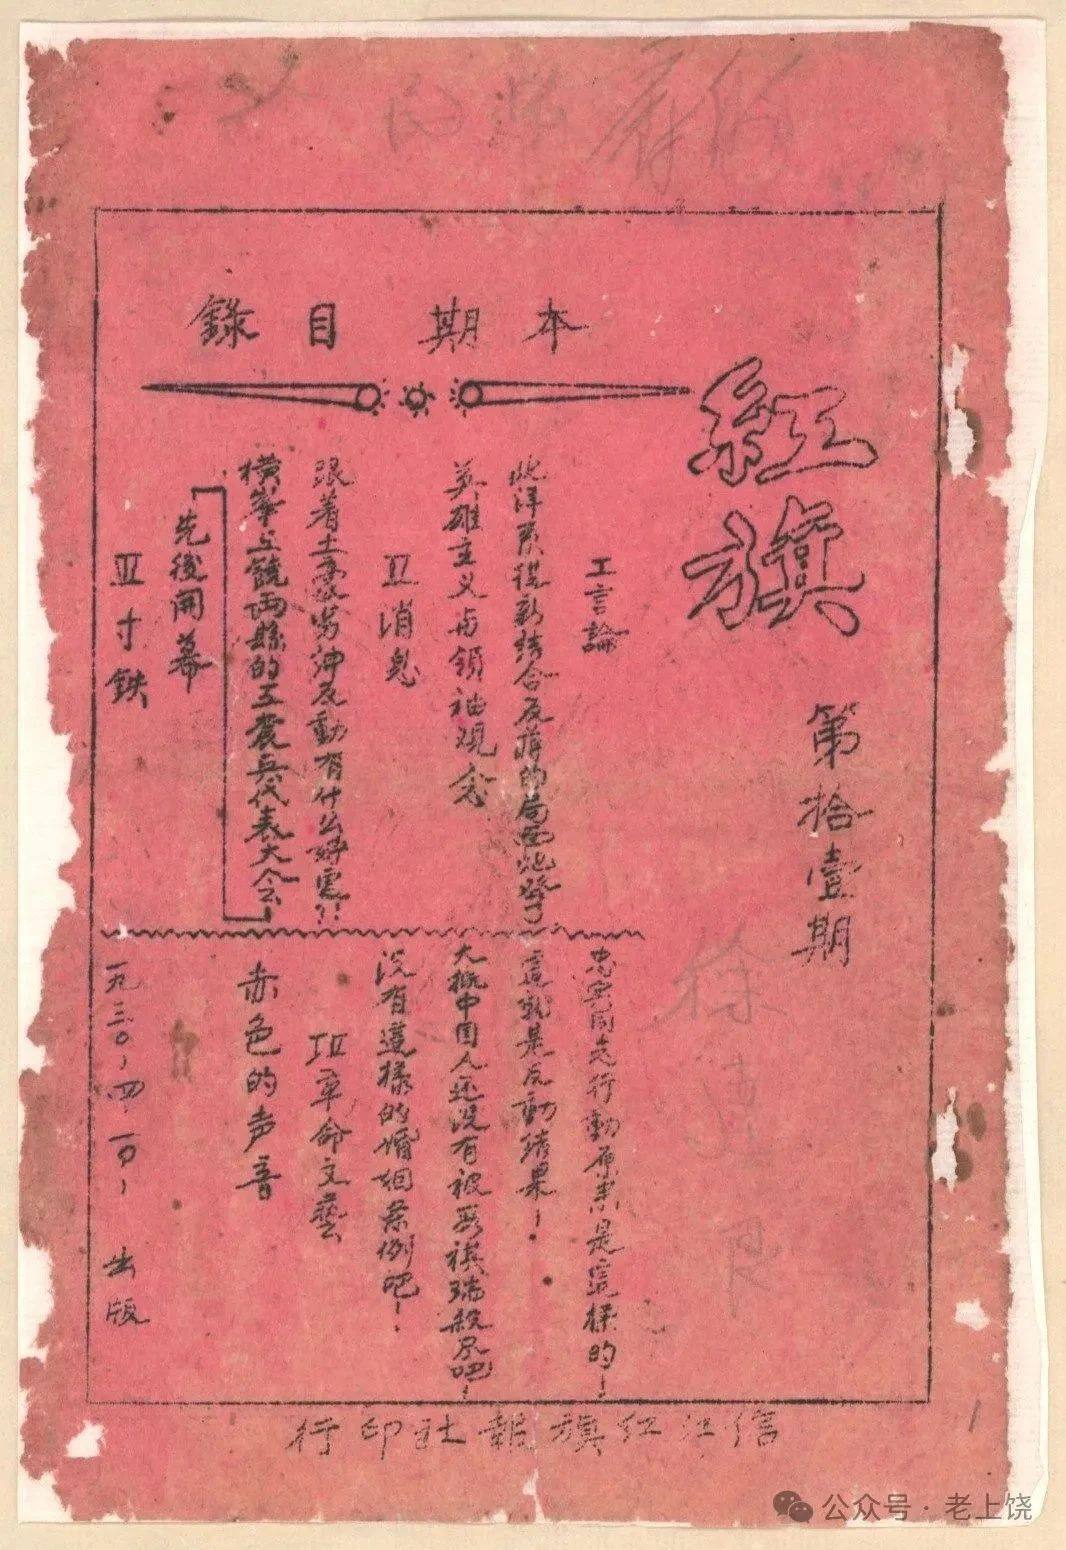 紅旗
第拾壹期
本期目錄
I言論
北洋軍閥新結合反蔣的局面炮發了
英雄主义与領袖观念
II消息
跟着土豪劣紳反動有什么好處?!
橫峯上饒両縣的工農兵代表大会!
先後開幕
III寸鉄
忠实同志行動原来是這樣的!
這就是反動結果!
大概中国人还没有被段祺瑞殺尽吧!
沒有這樣的婚姻条例吧!
IV革命文藝
赤色的声音
一九三〇,四,一〇,出版
信江红旗報社印行
徐
1
公众号·老上饶